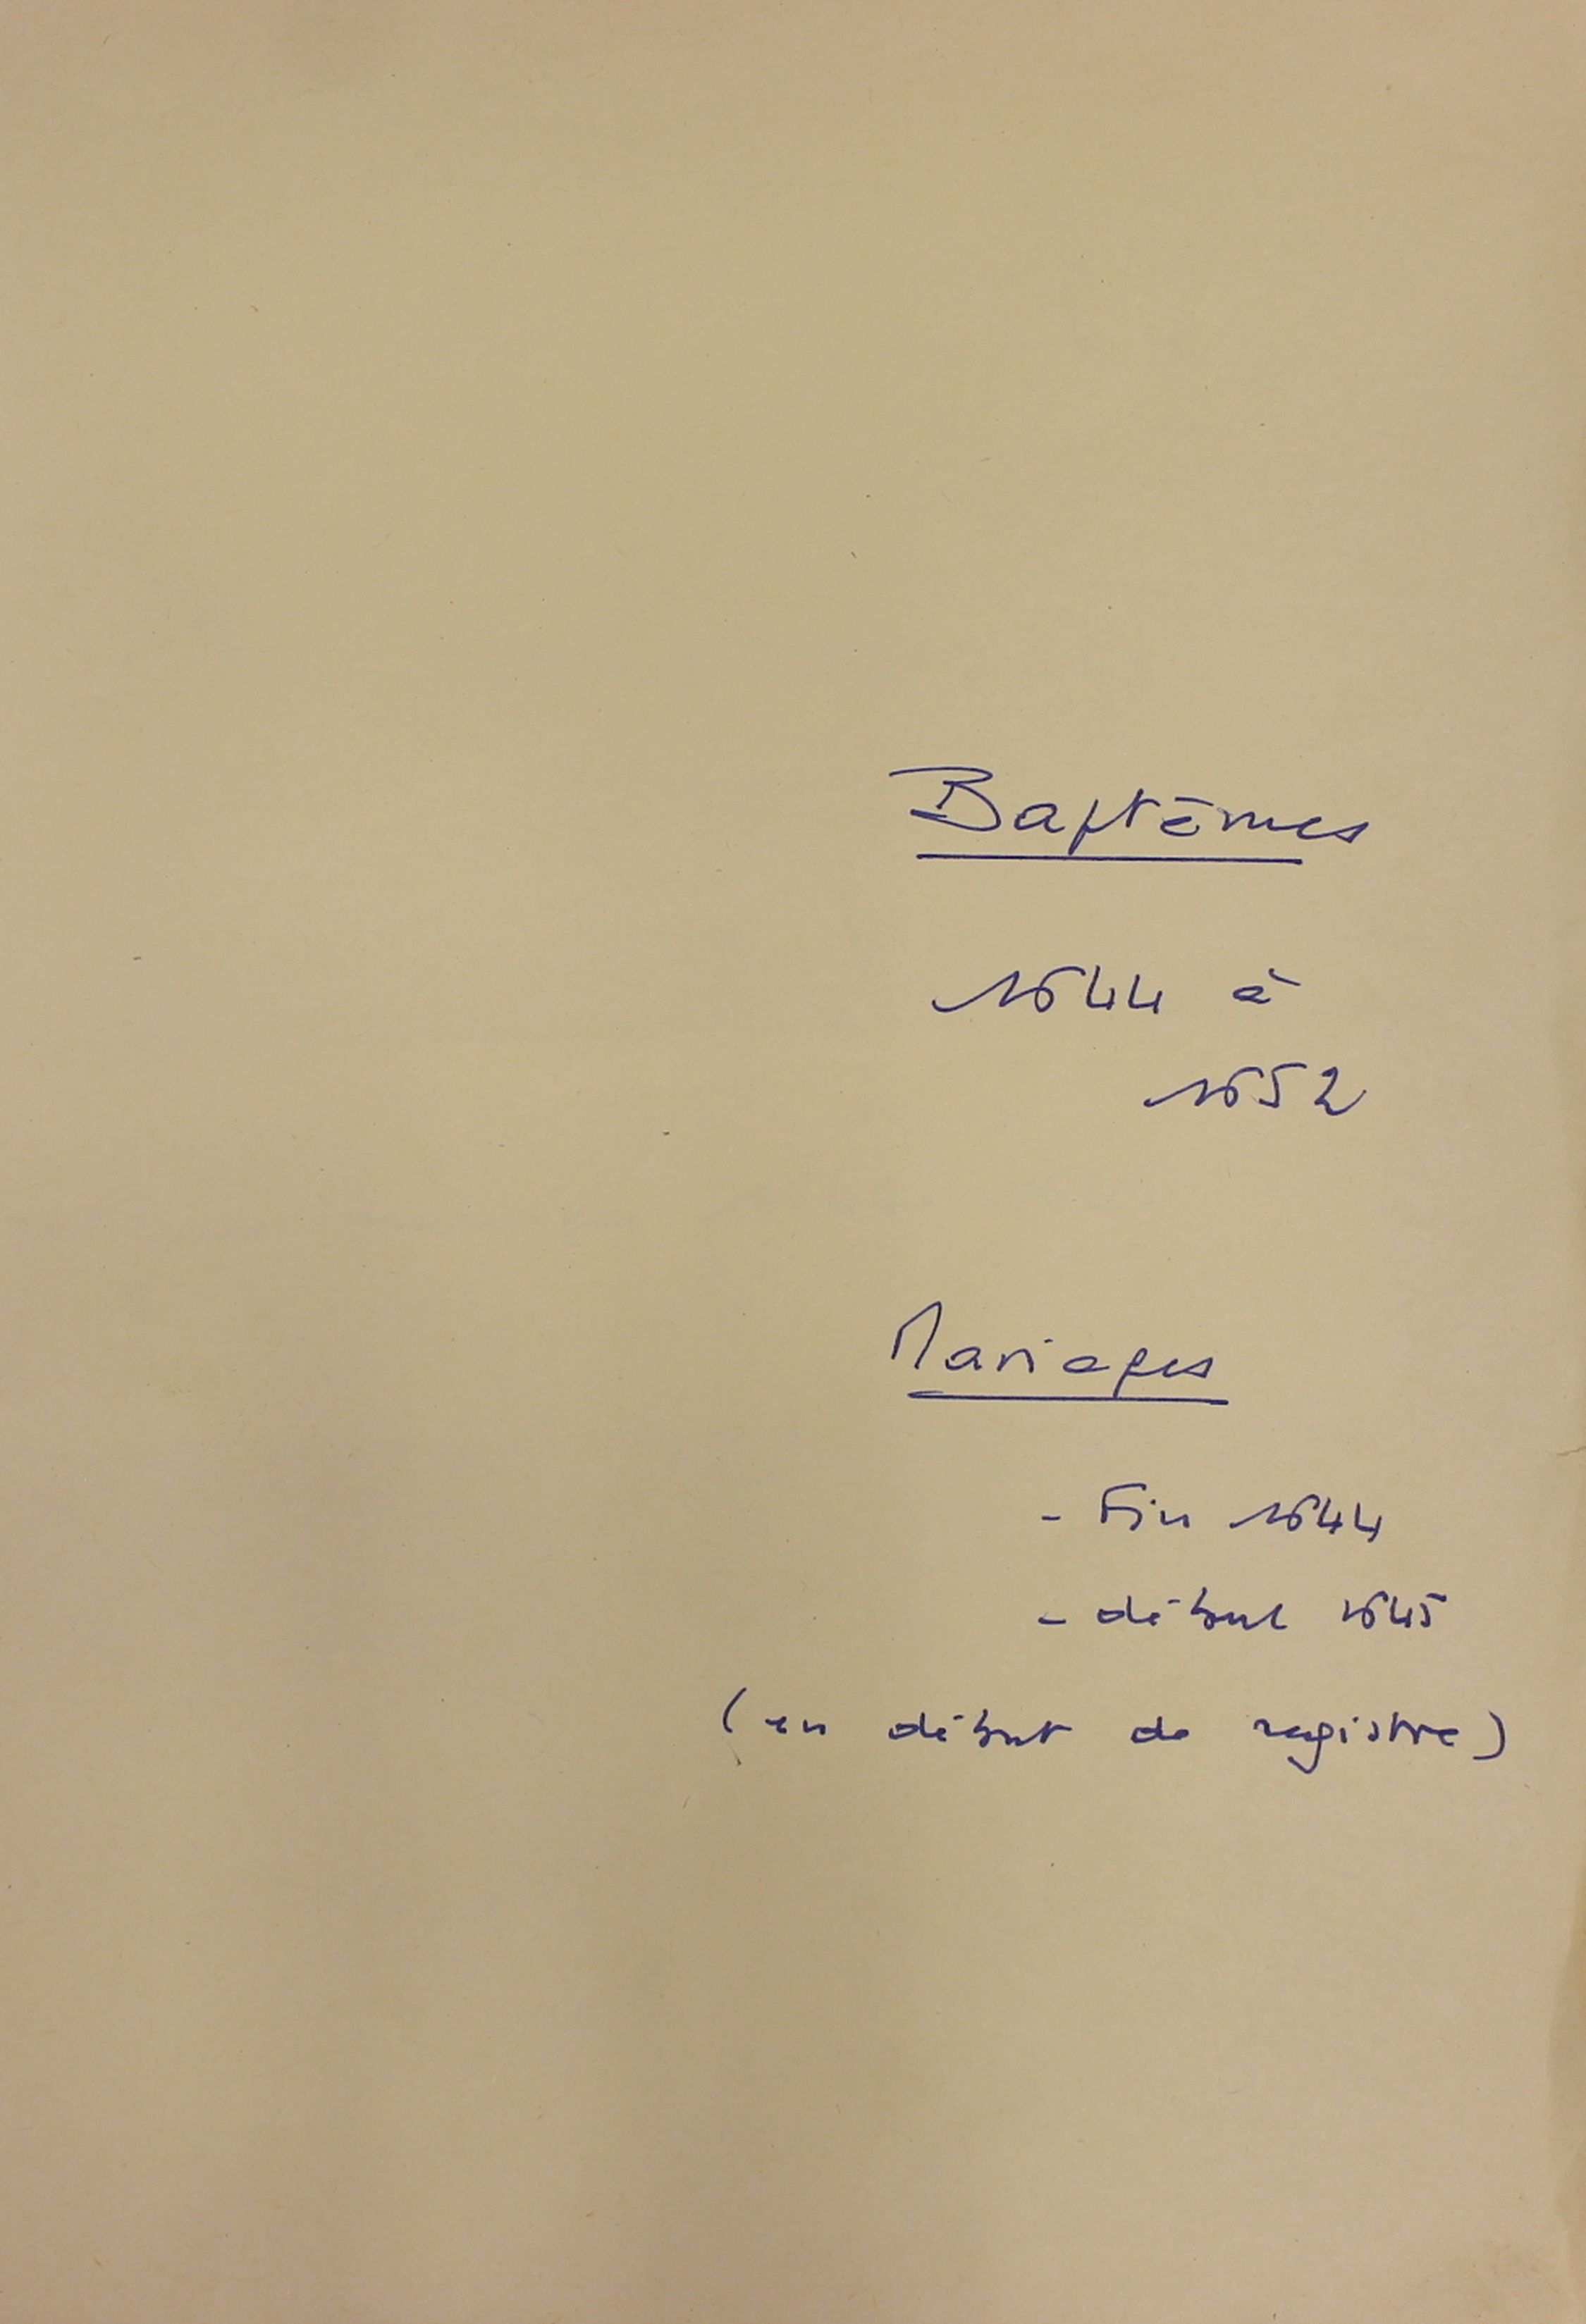 Baptêmes
1644 à
1652
Mariages
- Fin 1644
- début 1645
(en début de registre)